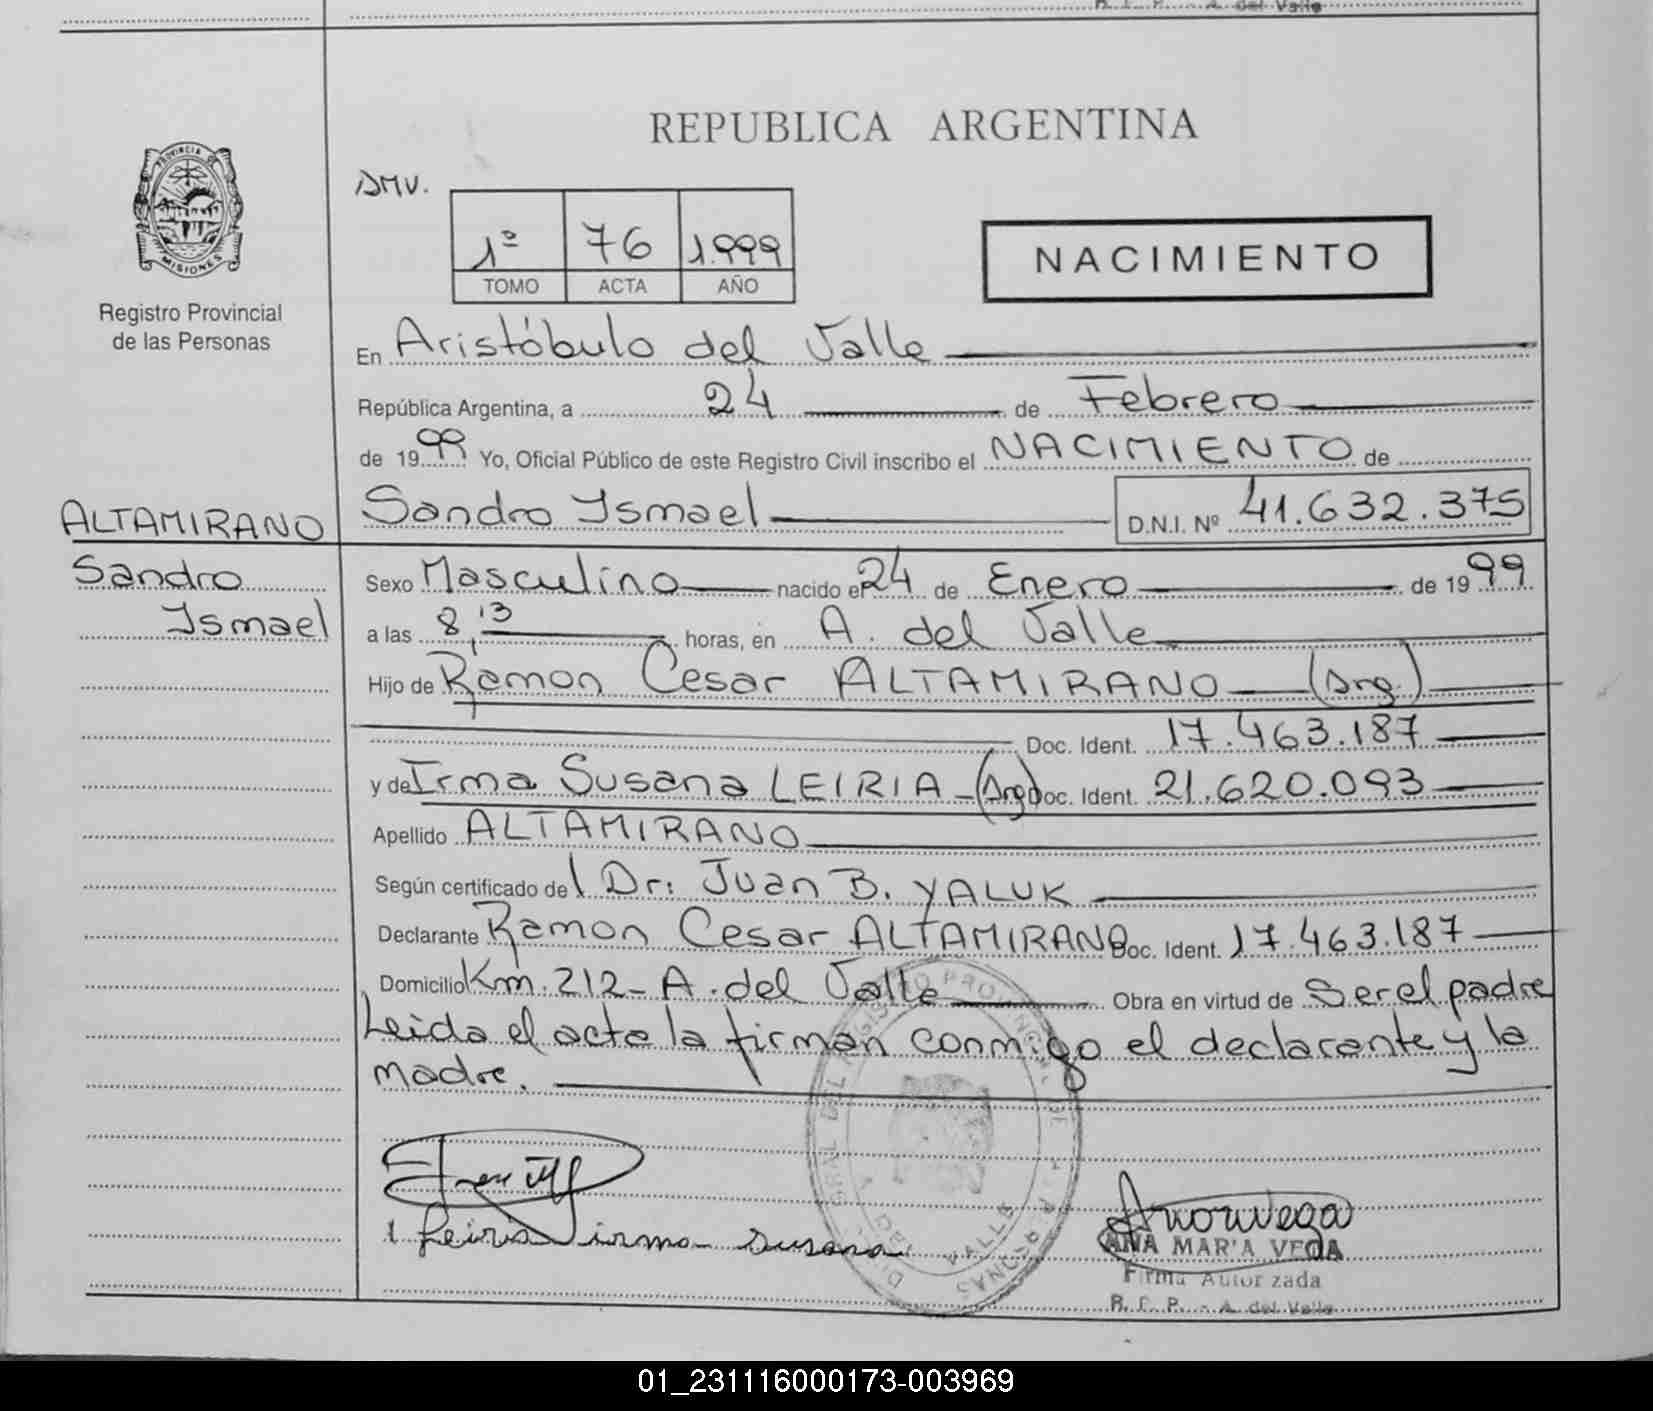 R. C. P. - A. del Valle
REPUBLICA ARGENTINA
PROVINCIA DE
MISIONES
Registro Provincial
de las Personas
DMV.
1º 76 1.999
TOMO ACTA AÑO
NACIMIENTO
En Aristóbulo del Valle
República Argentina, a 24 de Febrero
de 1999 Yo, Oficial Público de este Registro Civil inscribo el NACIMIENTO de
ALTAMIRANO
Sandro
Ismael
Sandro Ismael D.N.I. Nº 41.632.375
Sexo Masculino nacido el 24 de Enero de 1999
a las 8,13 horas, en A. del Valle
Hijo de Ramon Cesar ALTAMIRANO (Arg.)
Doc. Ident. 17.463.187
y de Irma Susana LEIRIA - (Arg) Doc. Ident. 21.620.093
Apellido ALTAMIRANO
Según certificado del Dr: Juan B. YALUK
Declarante Ramon Cesar ALTAMIRANO Doc. Ident. 17.463.187
Domicilio Km. 212 - A. del Valle Obra en virtud de Ser el padre
Leida el acta la firman conmigo el declarante y la
madre.
Leiria irma susana
ANA MAR'A VEGA
Firma Autor zada
R. C. P. - A. del Valle
01_231116000173-003969